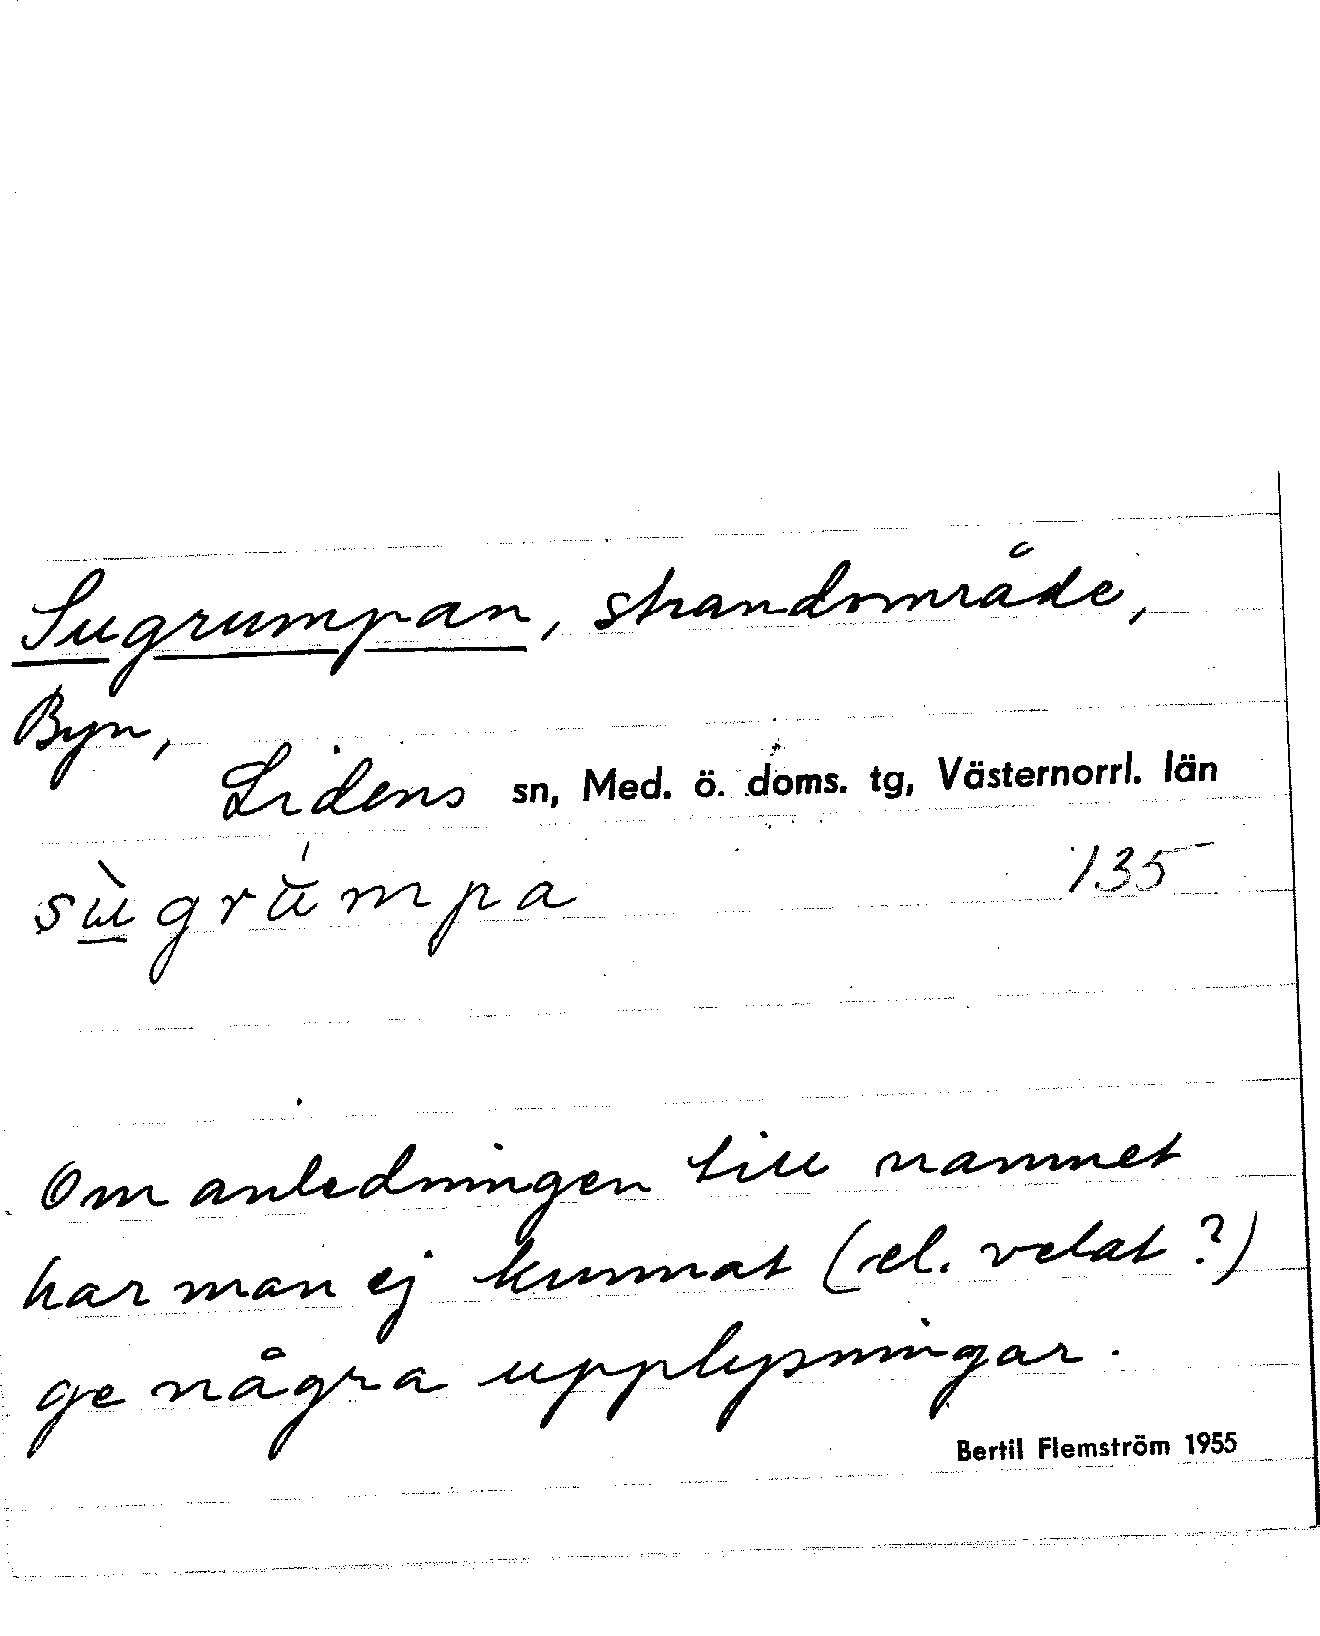 Sugrumpan, strandområde,
Byn,
Lidens sn, Med. ö. doms. tg, Västernorrl. län
sùgrùmpa 135
Om anledningen till namnet
har man ej kunnat (el. velat?)
ge några upplysningar.
Bertil Flemström 1955